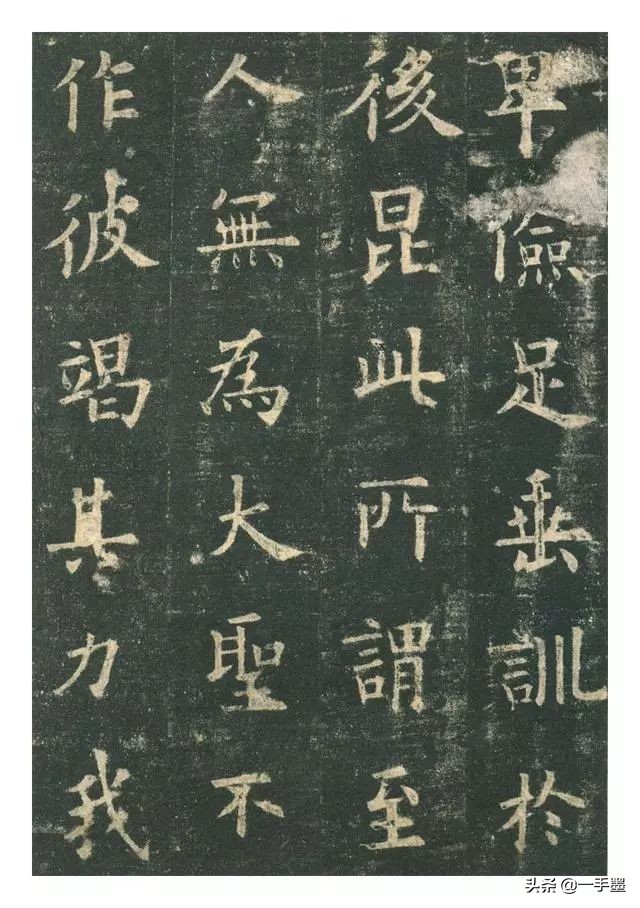 卑儉足垂訓於
後昆此所謂至
人無為大聖不
作彼竭其力我
头条 @一手墨